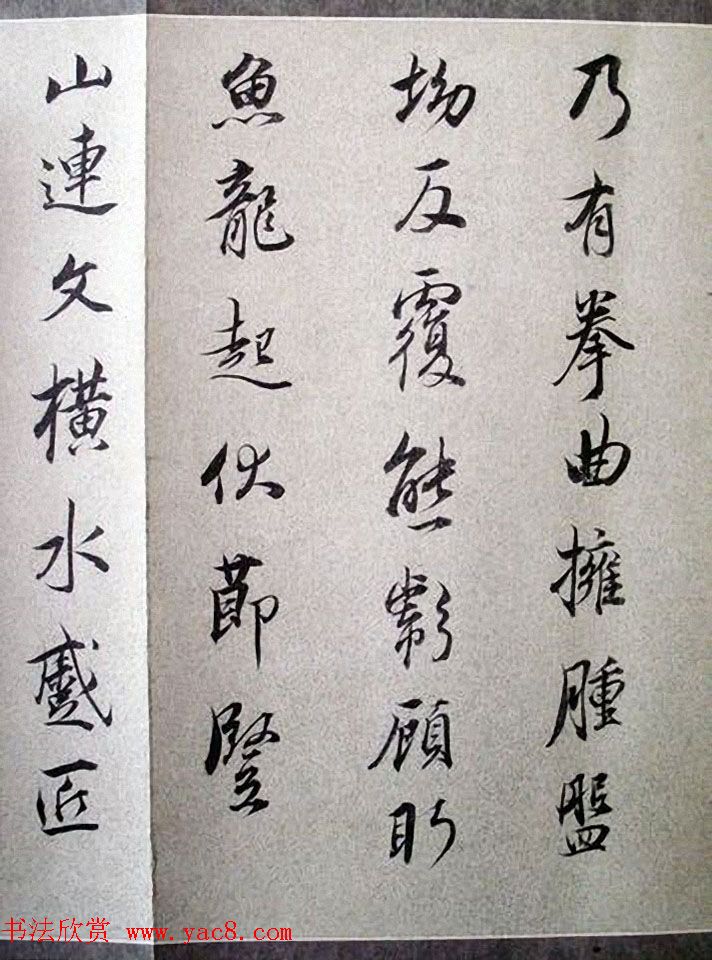 乃有拳曲擁腫盤
坳反覆熊彪顧盼
魚龍起伏節豎
山連文橫水蹙匠
书法欣赏 www.yac8.com